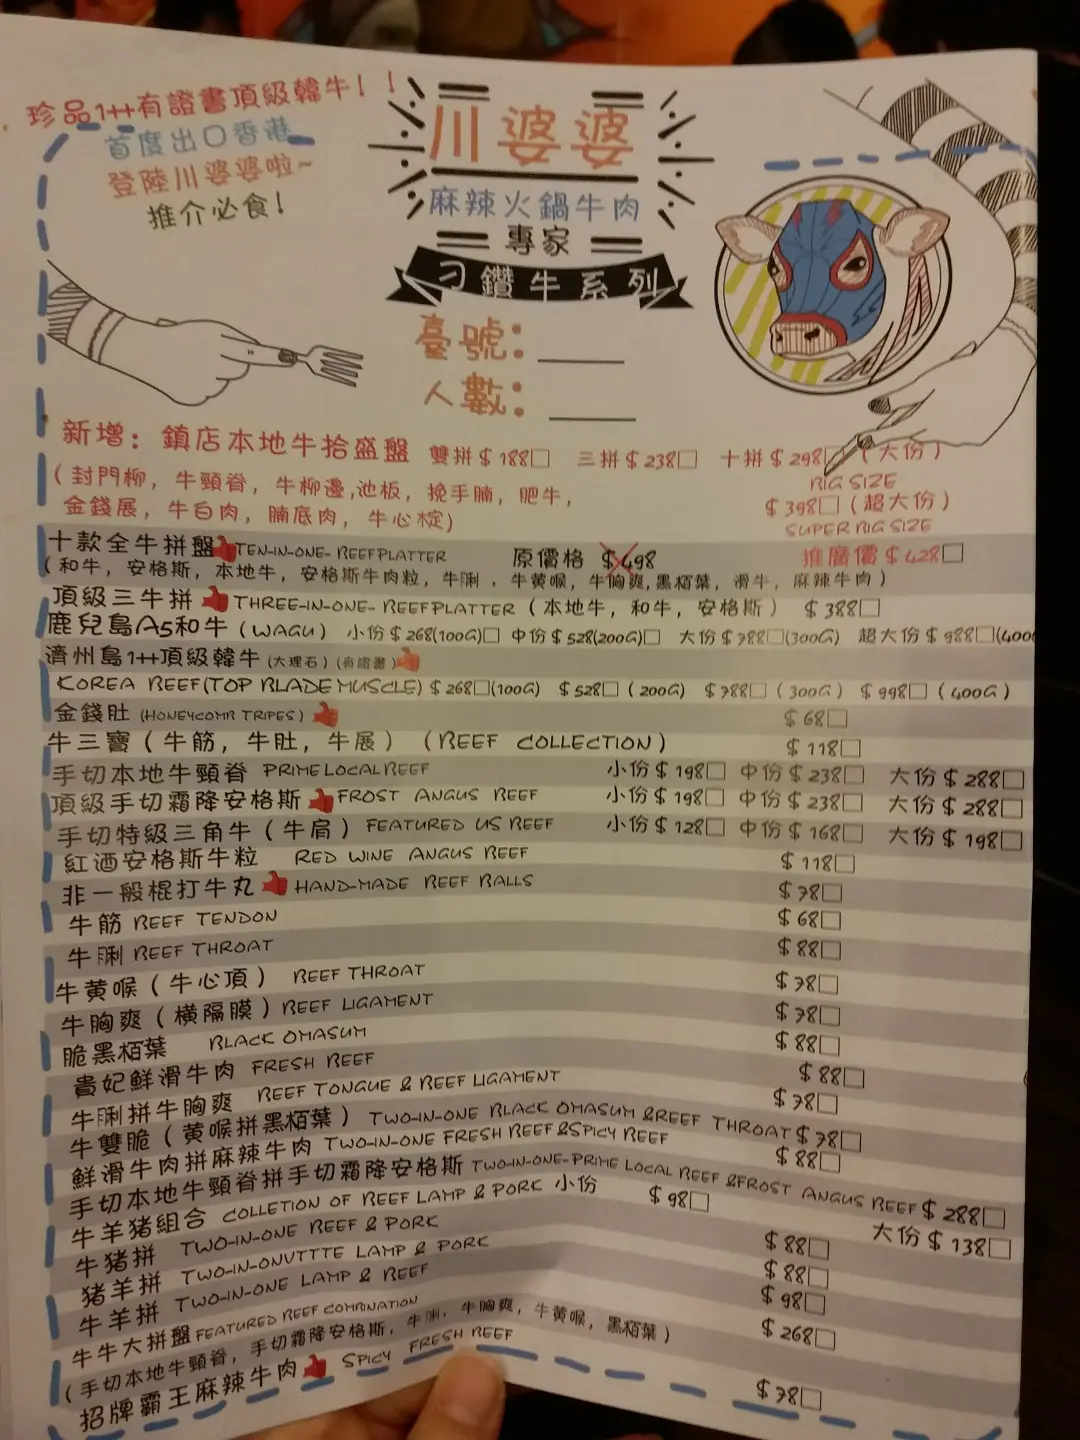 珍品1++有證書頂級韓牛！！
首度出口香港
登陸川婆婆啦~
推介必食!
川婆婆
麻辣火鍋牛肉
專家
刁鑽牛系列
臺號：
人數：
新增：鎮店本地牛拾盛盤 雙拼$188□ 三拼$238□ 十拼$298□（大份）
BIG SIZE
（封門柳，牛頸脊，牛柳邊,池板，挽手腩，肥牛，
$398□（超大份）
金錢展，牛白肉，腩底肉，牛心椗)
SUPER BIG SIZE
十款全牛拼盤 TEN-IN-ONE- BEEFPLATTER 原價格 $498 推廣價$428□
（和牛，安格斯，本地牛，安格斯牛肉粒，牛脷，牛黃喉，牛胸爽,黑栢葉，滑牛，麻辣牛肉）
頂級三牛拼 THREE-IN-ONE- BEEFPLATTER（本地牛，和牛，安格斯） $388□
鹿兒島A5和牛（WAGU） 小份$268(100G)□ 中份$528(200G)□ 大份$788□(300G) 超大份$988□(400G
濟州島1++頂級韓牛 (大理石) (有證書)
KOREA BEEF(TOP BLADE MUSCLE) $268□(100G) $528□(200G) $788□(300G) $998□(400G)
金錢肚 (HONEYCOMB TRIPES) $68□
牛三寶（牛筋，牛肚，牛展）（BEEF COLLECTION） $118□
手切本地牛頸脊 PRIME LOCAL BEEF 小份$198□ 中份$238□ 大份$288□
頂級手切霜降安格斯 FROST ANGUS BEEF 小份$198□ 中份$238□ 大份$288□
手切特級三角牛（牛肩） FEATURED US BEEF 小份$128□ 中份$168□ 大份$198□
紅酒安格斯牛粒 RED WINE ANGUS BEEF $118□
非一般棍打牛丸 HAND-MADE BEEF BALLS $78□
牛筋 BEEF TENDON $68□
牛脷 BEEF THROAT $88□
牛黃喉（牛心頂） BEEF THROAT $78□
牛胸爽（橫隔膜）BEEF LIGAMENT $78□
脆黑栢葉 BLACK OMASUM $88□
貴妃鮮滑牛肉 FRESH BEEF $88□
牛脷拼牛胸爽 BEEF TONGUE & BEEF LIGAMENT $78□
牛雙脆（黃喉拼黑栢葉） TWO-IN-ONE BLACK OMASUM &BEEF THROAT $78□
鮮滑牛肉拼麻辣牛肉 TWO-IN-ONE FRESH BEEF &SPICY BEEF $88□
手切本地牛頸脊拼手切霜降安格斯 TWO-IN-ONE-PRIME LOCAL BEEF &FROST ANGUS BEEF $288□
牛羊豬組合 COLLETION OF BEEF LAMP & PORK 小份 $98□ 大份$138□
牛豬拼 TWO-IN-ONE BEEF & PORK $88□
豬羊拼 TWO-IN-ONVTTTE LAMP & PORK $88□
牛羊拼 TWO-IN-ONE LAMP & BEEF $98□
牛牛大拼盤 FEATURED BEEF COMBINATION $268□
（手切本地牛頸脊，手切霜降安格斯，牛脷，牛胸爽，牛黃喉，黑栢葉）
招牌霸王麻辣牛肉 SPICY FRESH BEEF $78□